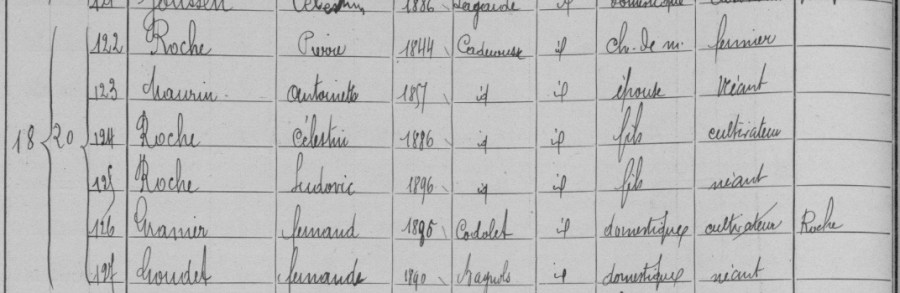 121 Joussen Célestin 1886 Lagarde id domestique
122 Roche Pierre 1844 Caderousse id ch. de m. fermier
123 Maurin Antoinette 1857 id id épouse Néant
18 20 124 Roche Célestin 1886 id id fils cultivateur
125 Roche Ludovic 1896 id id fils néant
126 Granier fernand 1895 Codolet id domestique cultivateur Roche
127 fernande 1890 id domestique néant